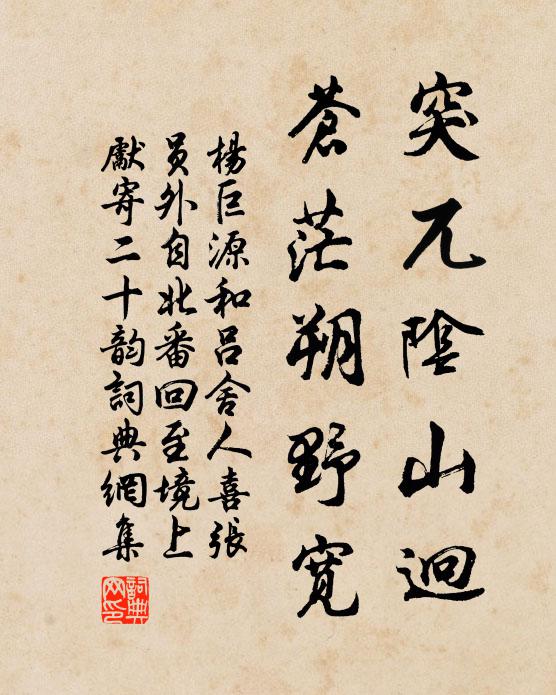 突兀陰山迥
蒼茫朔野寬
楊巨源和呂舍人喜張
員外自北番回至境上
獻寄二十韵詞典網集
詞典网印